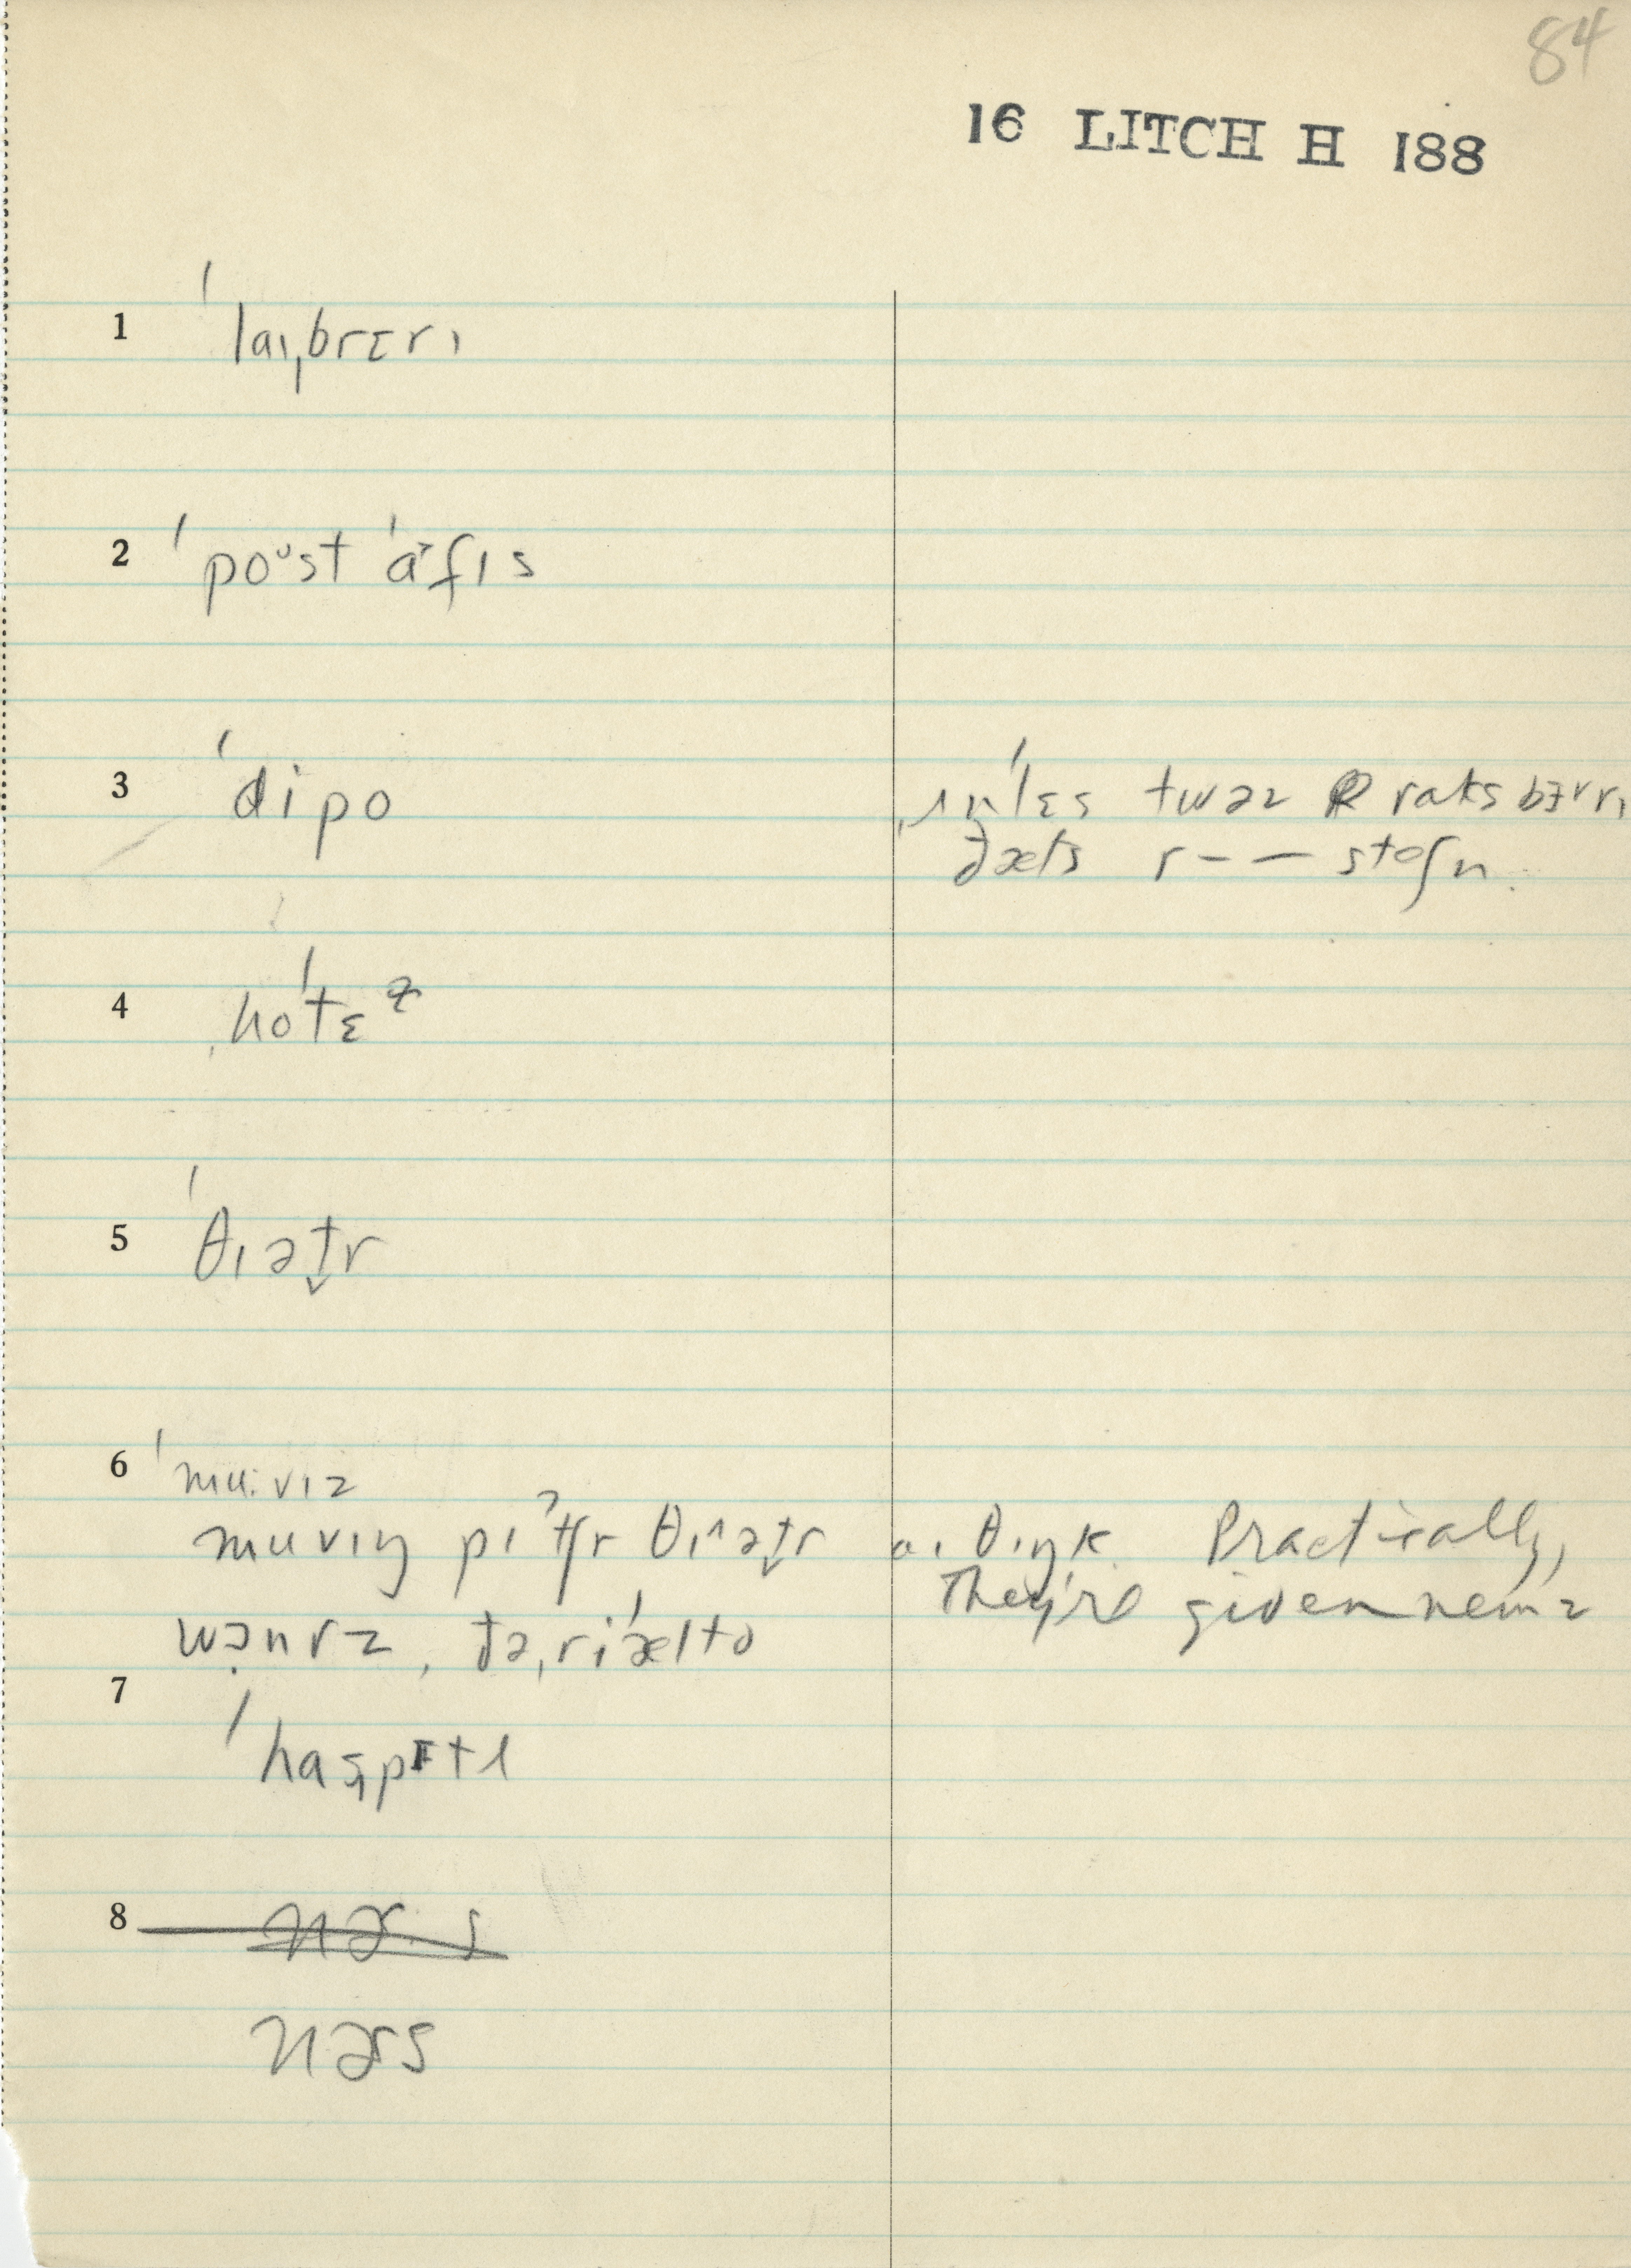 84
16 LITCH H 188
1 ˈlaɪˌbrɛrɪ
2 ˈpoᵘst ˈa˃fɪs
3 ˈdipo
ˌʌnˈlɛs twəz raksbɜʳrɪ
ðæts r—— steʃn.
4 ˌhoˈtɛɫ
5 ˈθɪət̬r
6 ˈmu:vɪz
muvɪŋ pɪˀtʃr θɪ^ət̬r aɪ θɪŋk. Practically,
They're given nemz
wɔ̣nrz, ðəˌriˈælto
7 ˈhasˌpɪtl
8
nərs